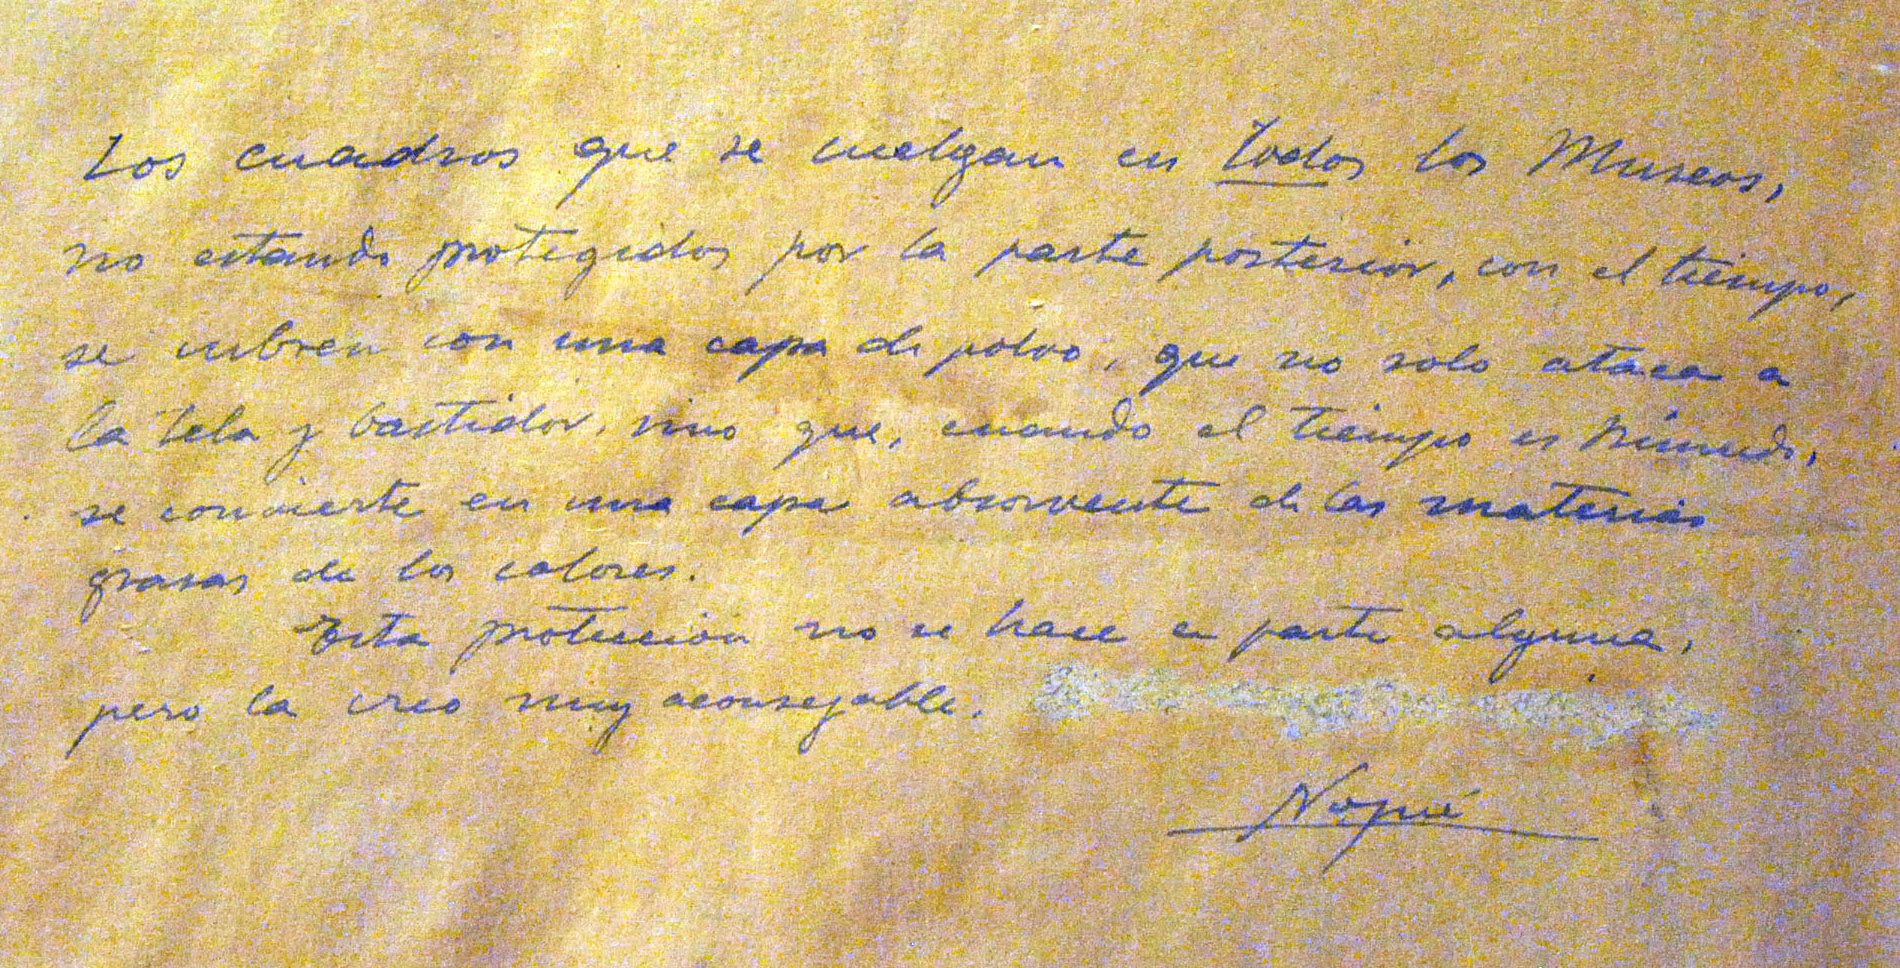 Los cuadros que se cuelgan en todos los Museos,
no estando protegidos por la parte posterior, con el tiempo,
se cubren con una capa de polvo, que no solo ataca a
la tela y bastidor, sino que, cuando el tiempo es húmedo,
se convierte en una capa absorvente de las materias
grasas de los colores.
Esta protección no se hace en parte alguna,
pero la creo muy aconsejable.